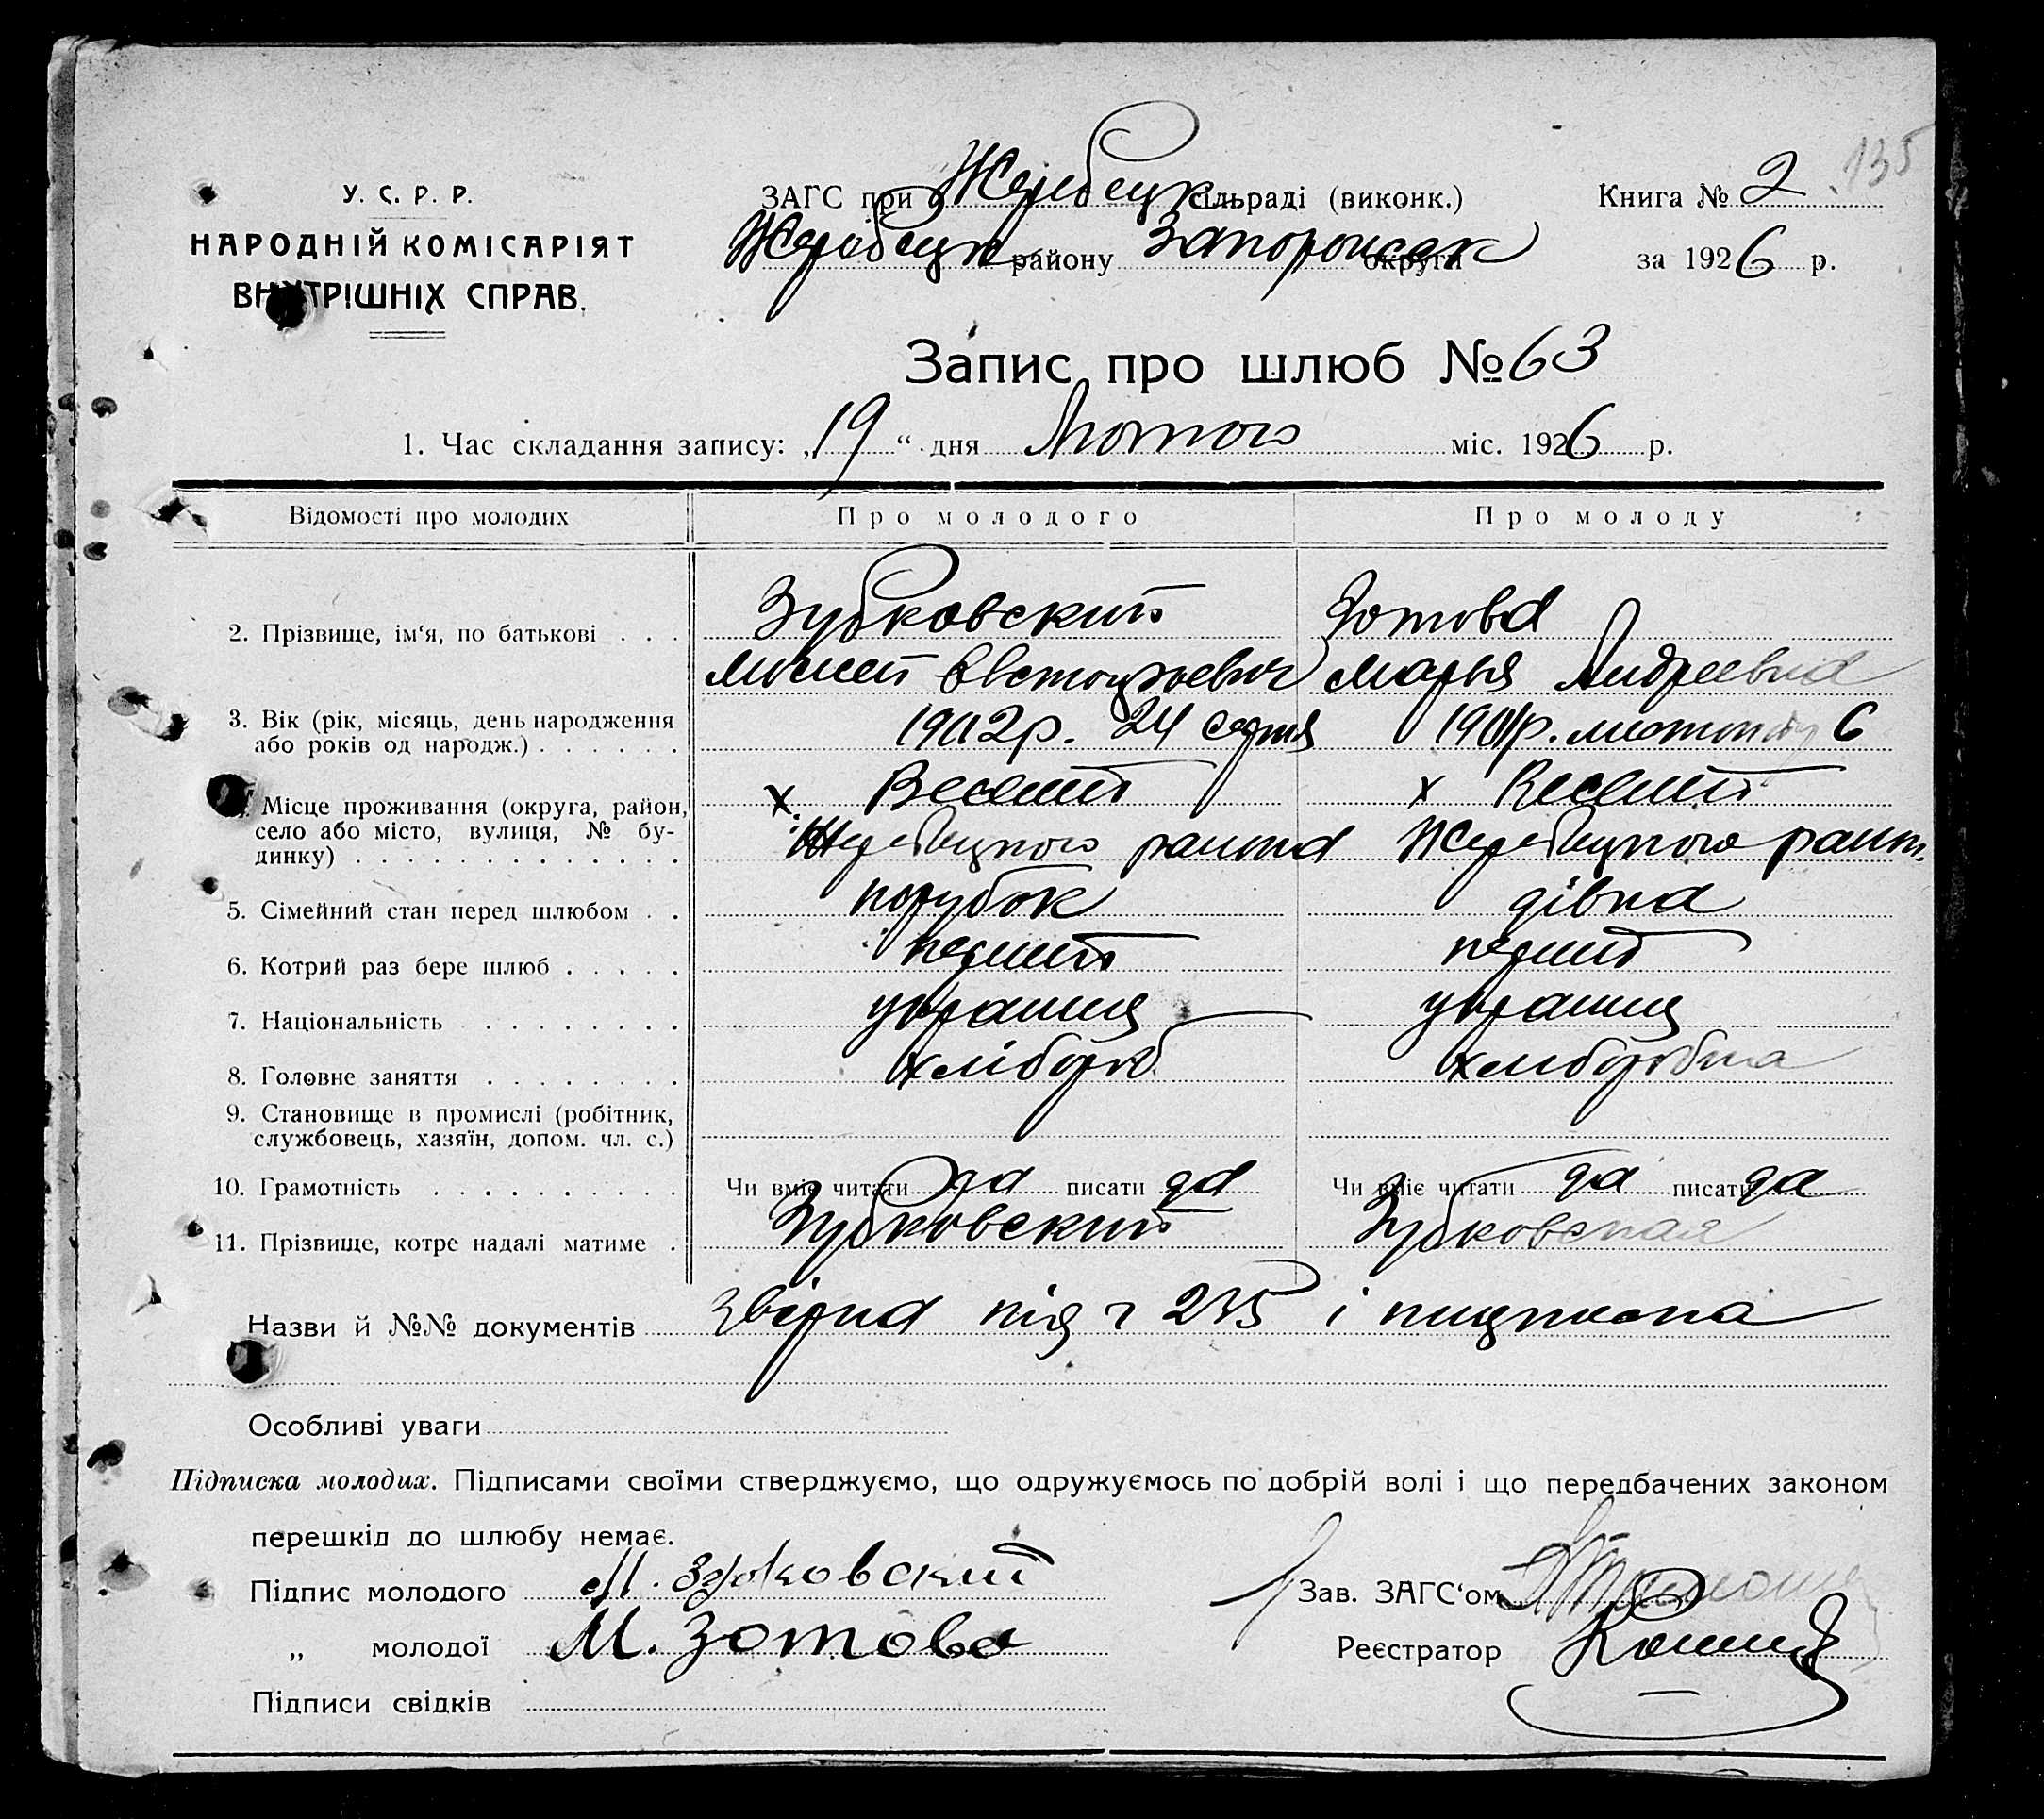 135
У. С. Р. Р.
НАРОДНІЙ КОМІСАРІЯТ
ВНУТРІШНІХ СПРАВ.
ЗАГС при Жеребецк сільраді (виконк.)
Жеребецк району Запорожск округи
Книга № 2
за 1926 р.
Запис про шлюб № 63
1. Час складання запису: „19“ дня Лютого міс. 1926 р.
Відомості про молодих Про молодого Про молоду
2. Прізвище, ім‘я, по батькові . . . Зубковский Зотова
Мосей Овстах Марья Андреевна
3. Вік (рік, місяць, день народження 1902р. 24 серпня
або років од народж.) . . . . . .
6
Місце проживання (округа, район, х Веселий х Веселий
село або місто, вулиця, № бу- Жеребецкого района Жеребецкого
динку) . . . . . . . . . . . . .
5. Сімейний стан перед шлюбом . . парубок дівка
6. Котрий раз бере шлюб . . . . . перший перший
7. Національність . . . . . . . . україн україн
8. Головне заняття . . . . . . . хлібороб хліборобка
9. Становище в промислі (робітник,
службовець, хазяїн, допом. чл. с.)
10. Грамотність . . . . . . . . . . Чи вміє читати да писати да Чи вміє читати да писати да
11. Прізвище, котре надалі матиме . Зубковский Зубковская
Назви й №№ документів звірна під ч і
Особливі уваги
Підписка молодих. Підписами своїми стверджуємо, що одружуємось по добрій волі і що передбачених законом
перешкід до шлюбу немає.
Підпис молодого М. Зубковский Зав. ЗАГС‘ом
„ молодої М. Зотова Реєстратор
Підписи свідків